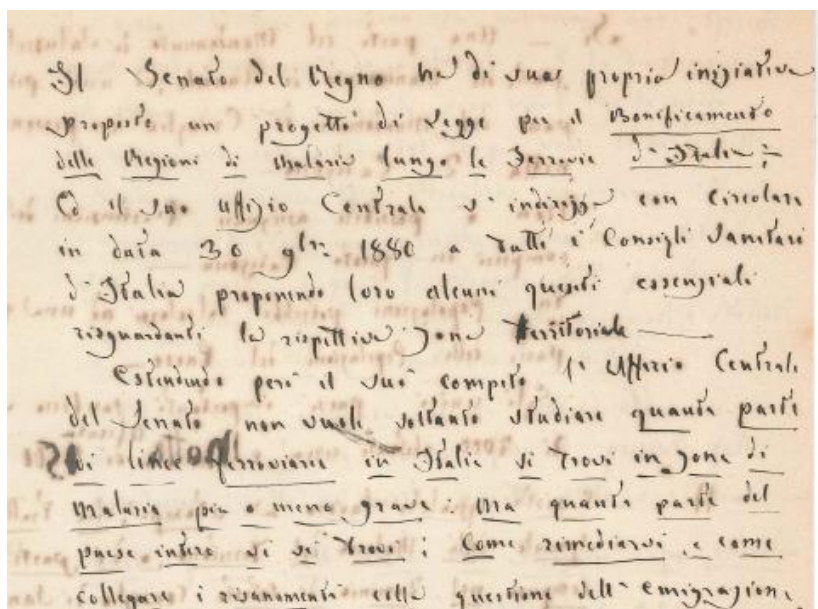 Il Senato del Regno ha di sua propria iniziativa
proposto un progetto di Legge per il Bonificamento
delle Regioni di Malaria lungo le Ferrovie d'Italia;
Ed il suo Uffizio Centrale s'indirizza con Circolare
in data 30 9bre 1880 a tutti i Consigli Sanitari
d'Italia proponendo loro alcuni quesiti essenziali
risguardanti la rispettiva zona territoriale
Estendendo però il suo compito l'Ufficio Centrale
del Senato non vuole soltanto studiare quanta parte
di linee ferroviarie in Italia si trovi in zone di
Malaria più o meno grave: Ma quanta parte del
paese intero vi si trovi; Come rimediarvi, e come
collegare i risanamenti colla questione dell'emigrazione